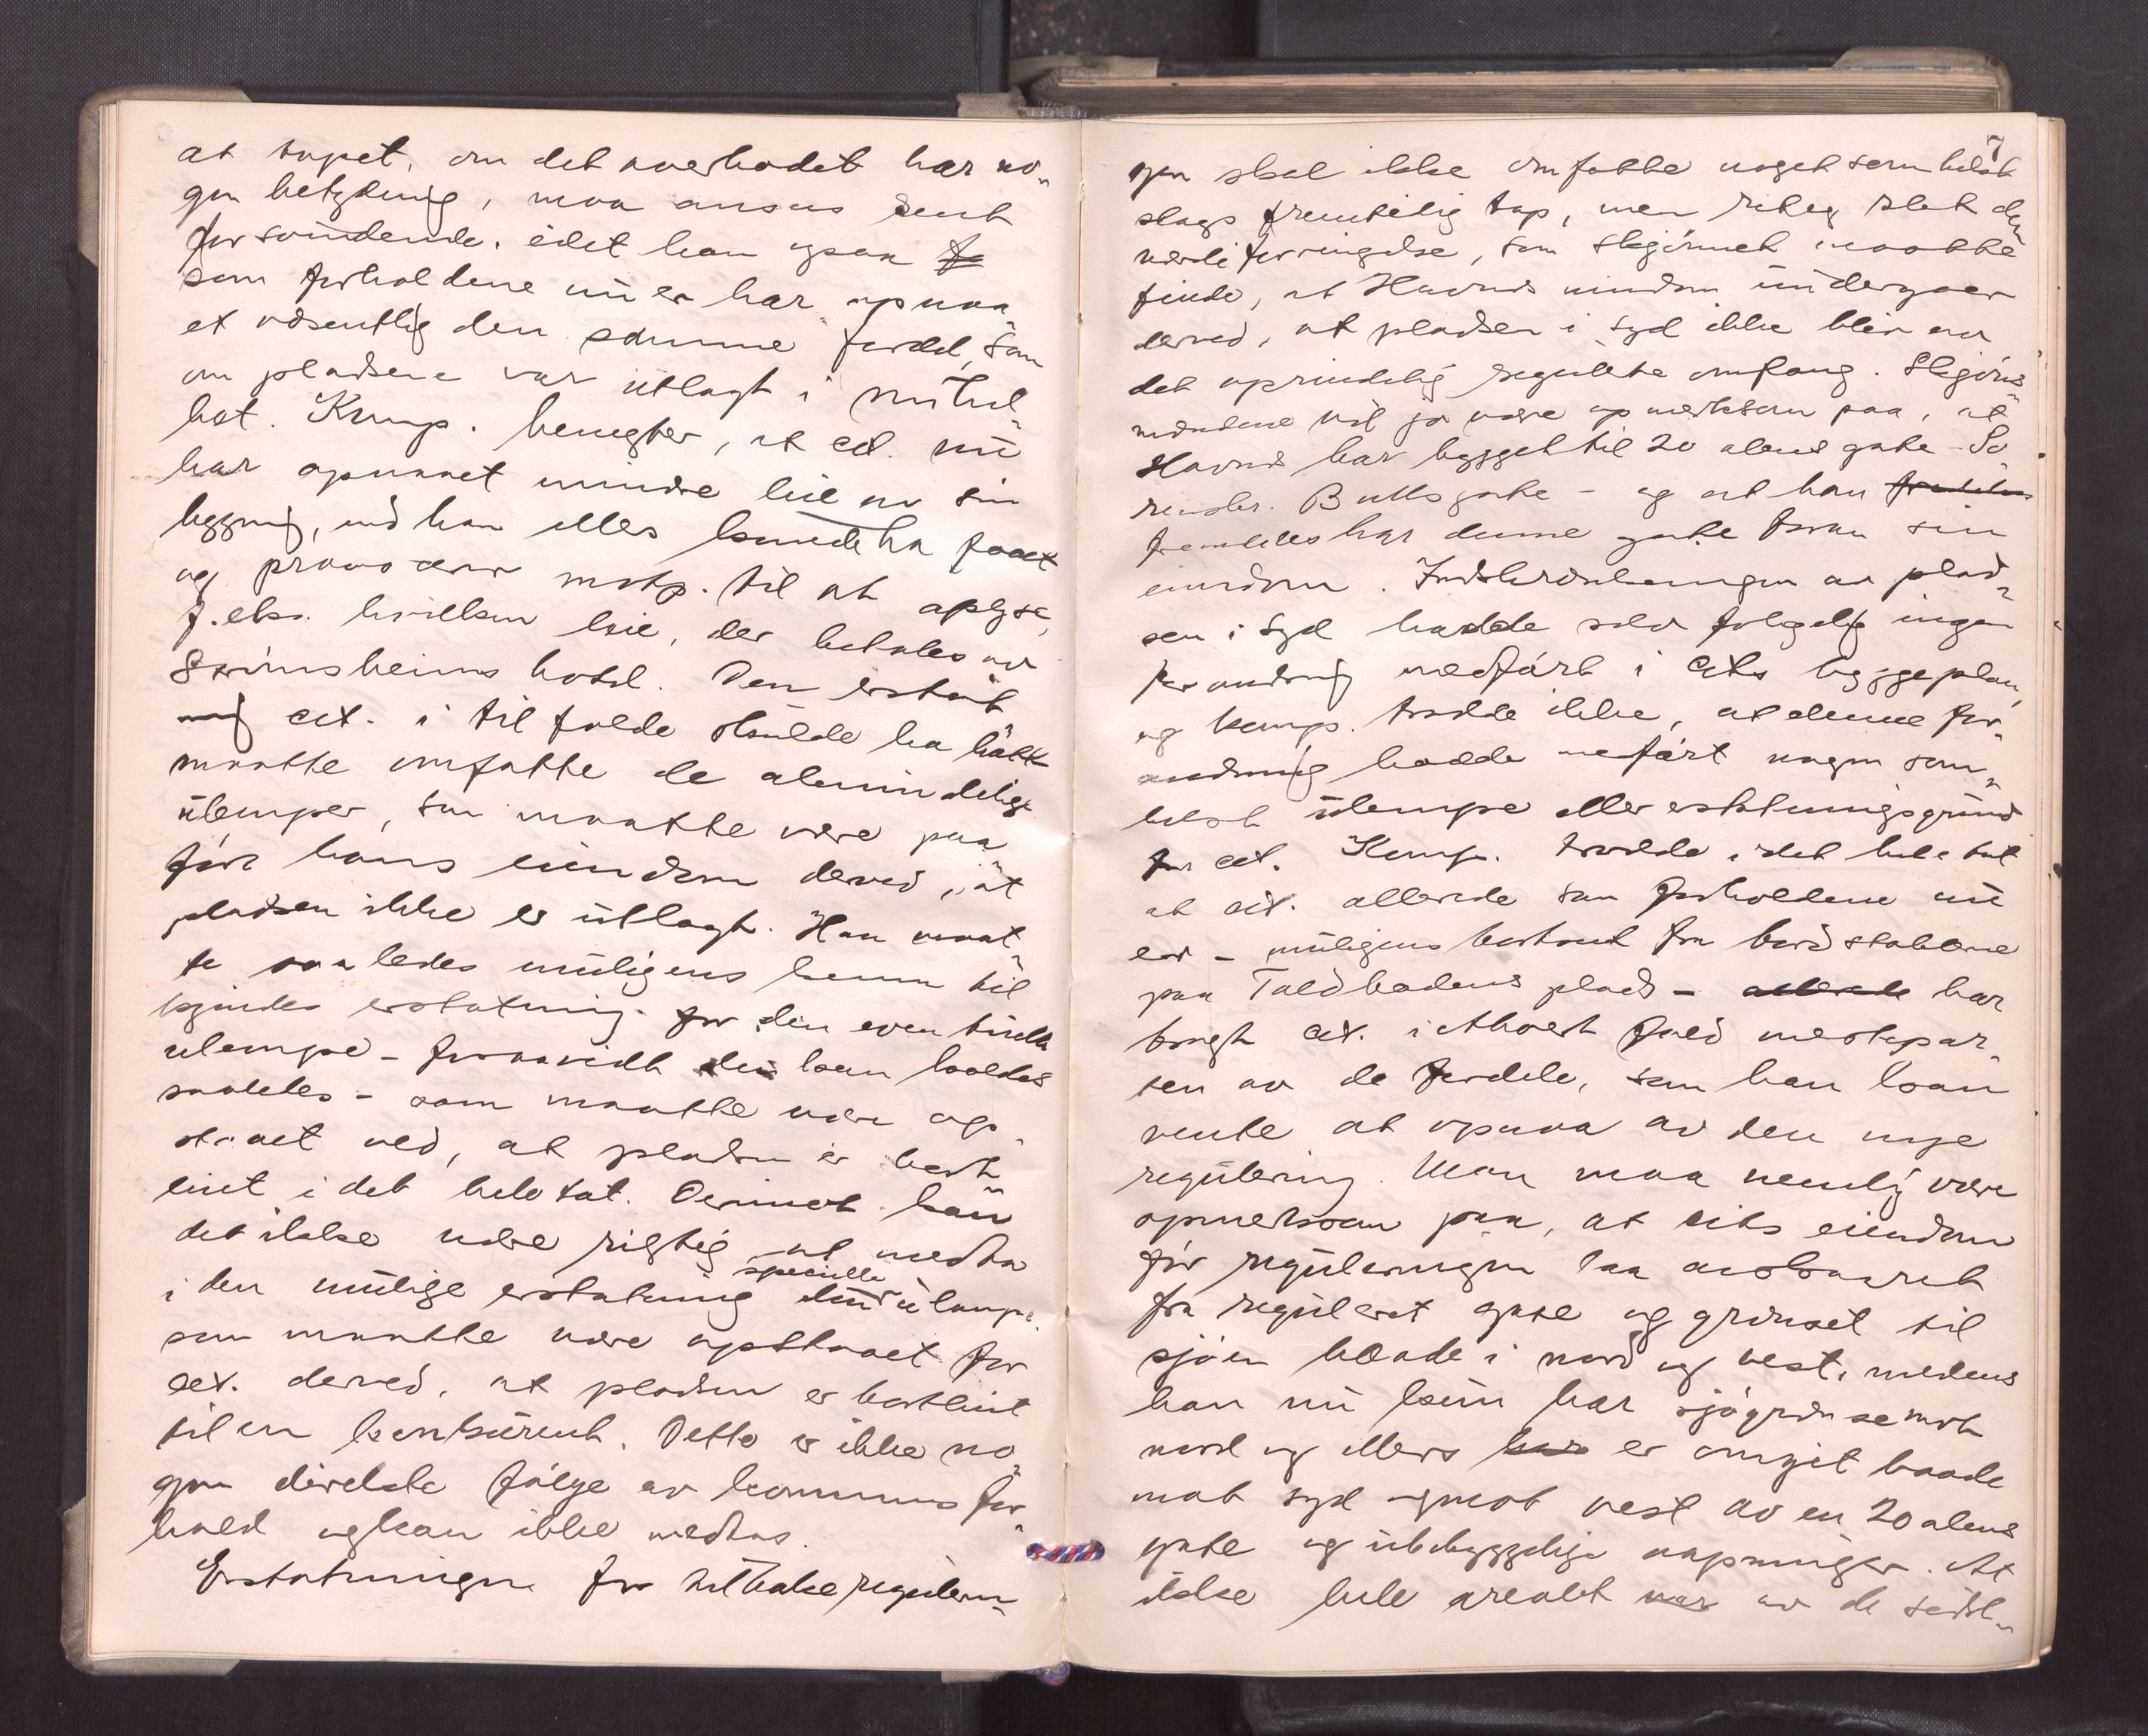 at tapet, om det overhodet har no-
gen betydning, maa ansees sent
forsvindende, idet han ogsaa
som forholdene nu er har opnaa-
et væsentlig den samme fordel, som
om pladsene var utlagt i sin hel-
het. Komp. benegter, at cit. nu
har opnaaet mindre leie av sin
bygning, end han ellers kunde ha faaet
og provocerer motp. til at oplyse,
f. eks. hvilken leie, der betales av
hotel. Den erstat-
ning cit. i tilfælde skulde ha hatt
maatte omfatte de almindelige
ulemper, som maatte være paa-
ført hans eiendom derved, at
pladsen ikke er utlagt. Han maat-
te saaledes muligens kunne til
kjendes erstatning for den eventuelle
ulempe - forsaavidt den kan kaldes
saaledes - som maatte være op-
staaet ved, at pladsen er bort
leiet i det hele tat. Derimot kan
det ikke være rigtig at medta
i den mulige erstatning den specielle ulempe,
som maatte være opstaaet for
cit. derved, at pladsen er bortleiet
til en konkurent. Dette er ikke no-
gen direkte følge av kommunens for-
hold og kan ikke medtas.
Erstatningen for tilbakereguleri-
7
gen skal ikke omfatte noget som helst
slags fremtidig tap, men ret og slet den
værdiforringelse, som skjønnet maatte
finde, at Havnds eiendom undergaar
derved, at pladsen i syd ikke blir av
det oprindelig regulerte omfang. Skjøns-
mændene vil jo være opmerksom paa, at
Havnds har bygget til 20 alens gate - So
renskr. Bulls gate - og at han
fremdeles har denne gate foran sin
eiendom. Indskrænkningen av plad-
sen i syd hadde selvfølgelig ingen
forandring medført i cits byggeplan,
og komp. trodde ikke, at denne for-
andring hadde medført nogen som-
helst ulempe eller erstatningsgrund
for cit. Komp. trodde i det hele tat
at cit. allerede som forholdene nu
er - muligens bortset fra
paa Toldbodens plads - allerede har
bragt cit. i ethvert fald mestepar-
ten av de fordele, som han kan
vente at opnaa av den nye
regulering. Man maa nemlig være
opmerksom paa, at cits eiendom
før reguleringen laa avskaaret
fra reguleret gate og grænset til
sjøen baade i nord og vest, medens
han nu kun har sjøgrænse mot
nord og ellers har er omgit baade
mot syd og mot vest av en 20 alens
gate og ubebyggelige aapninger. At
ikke hele arealet var av de sidst-